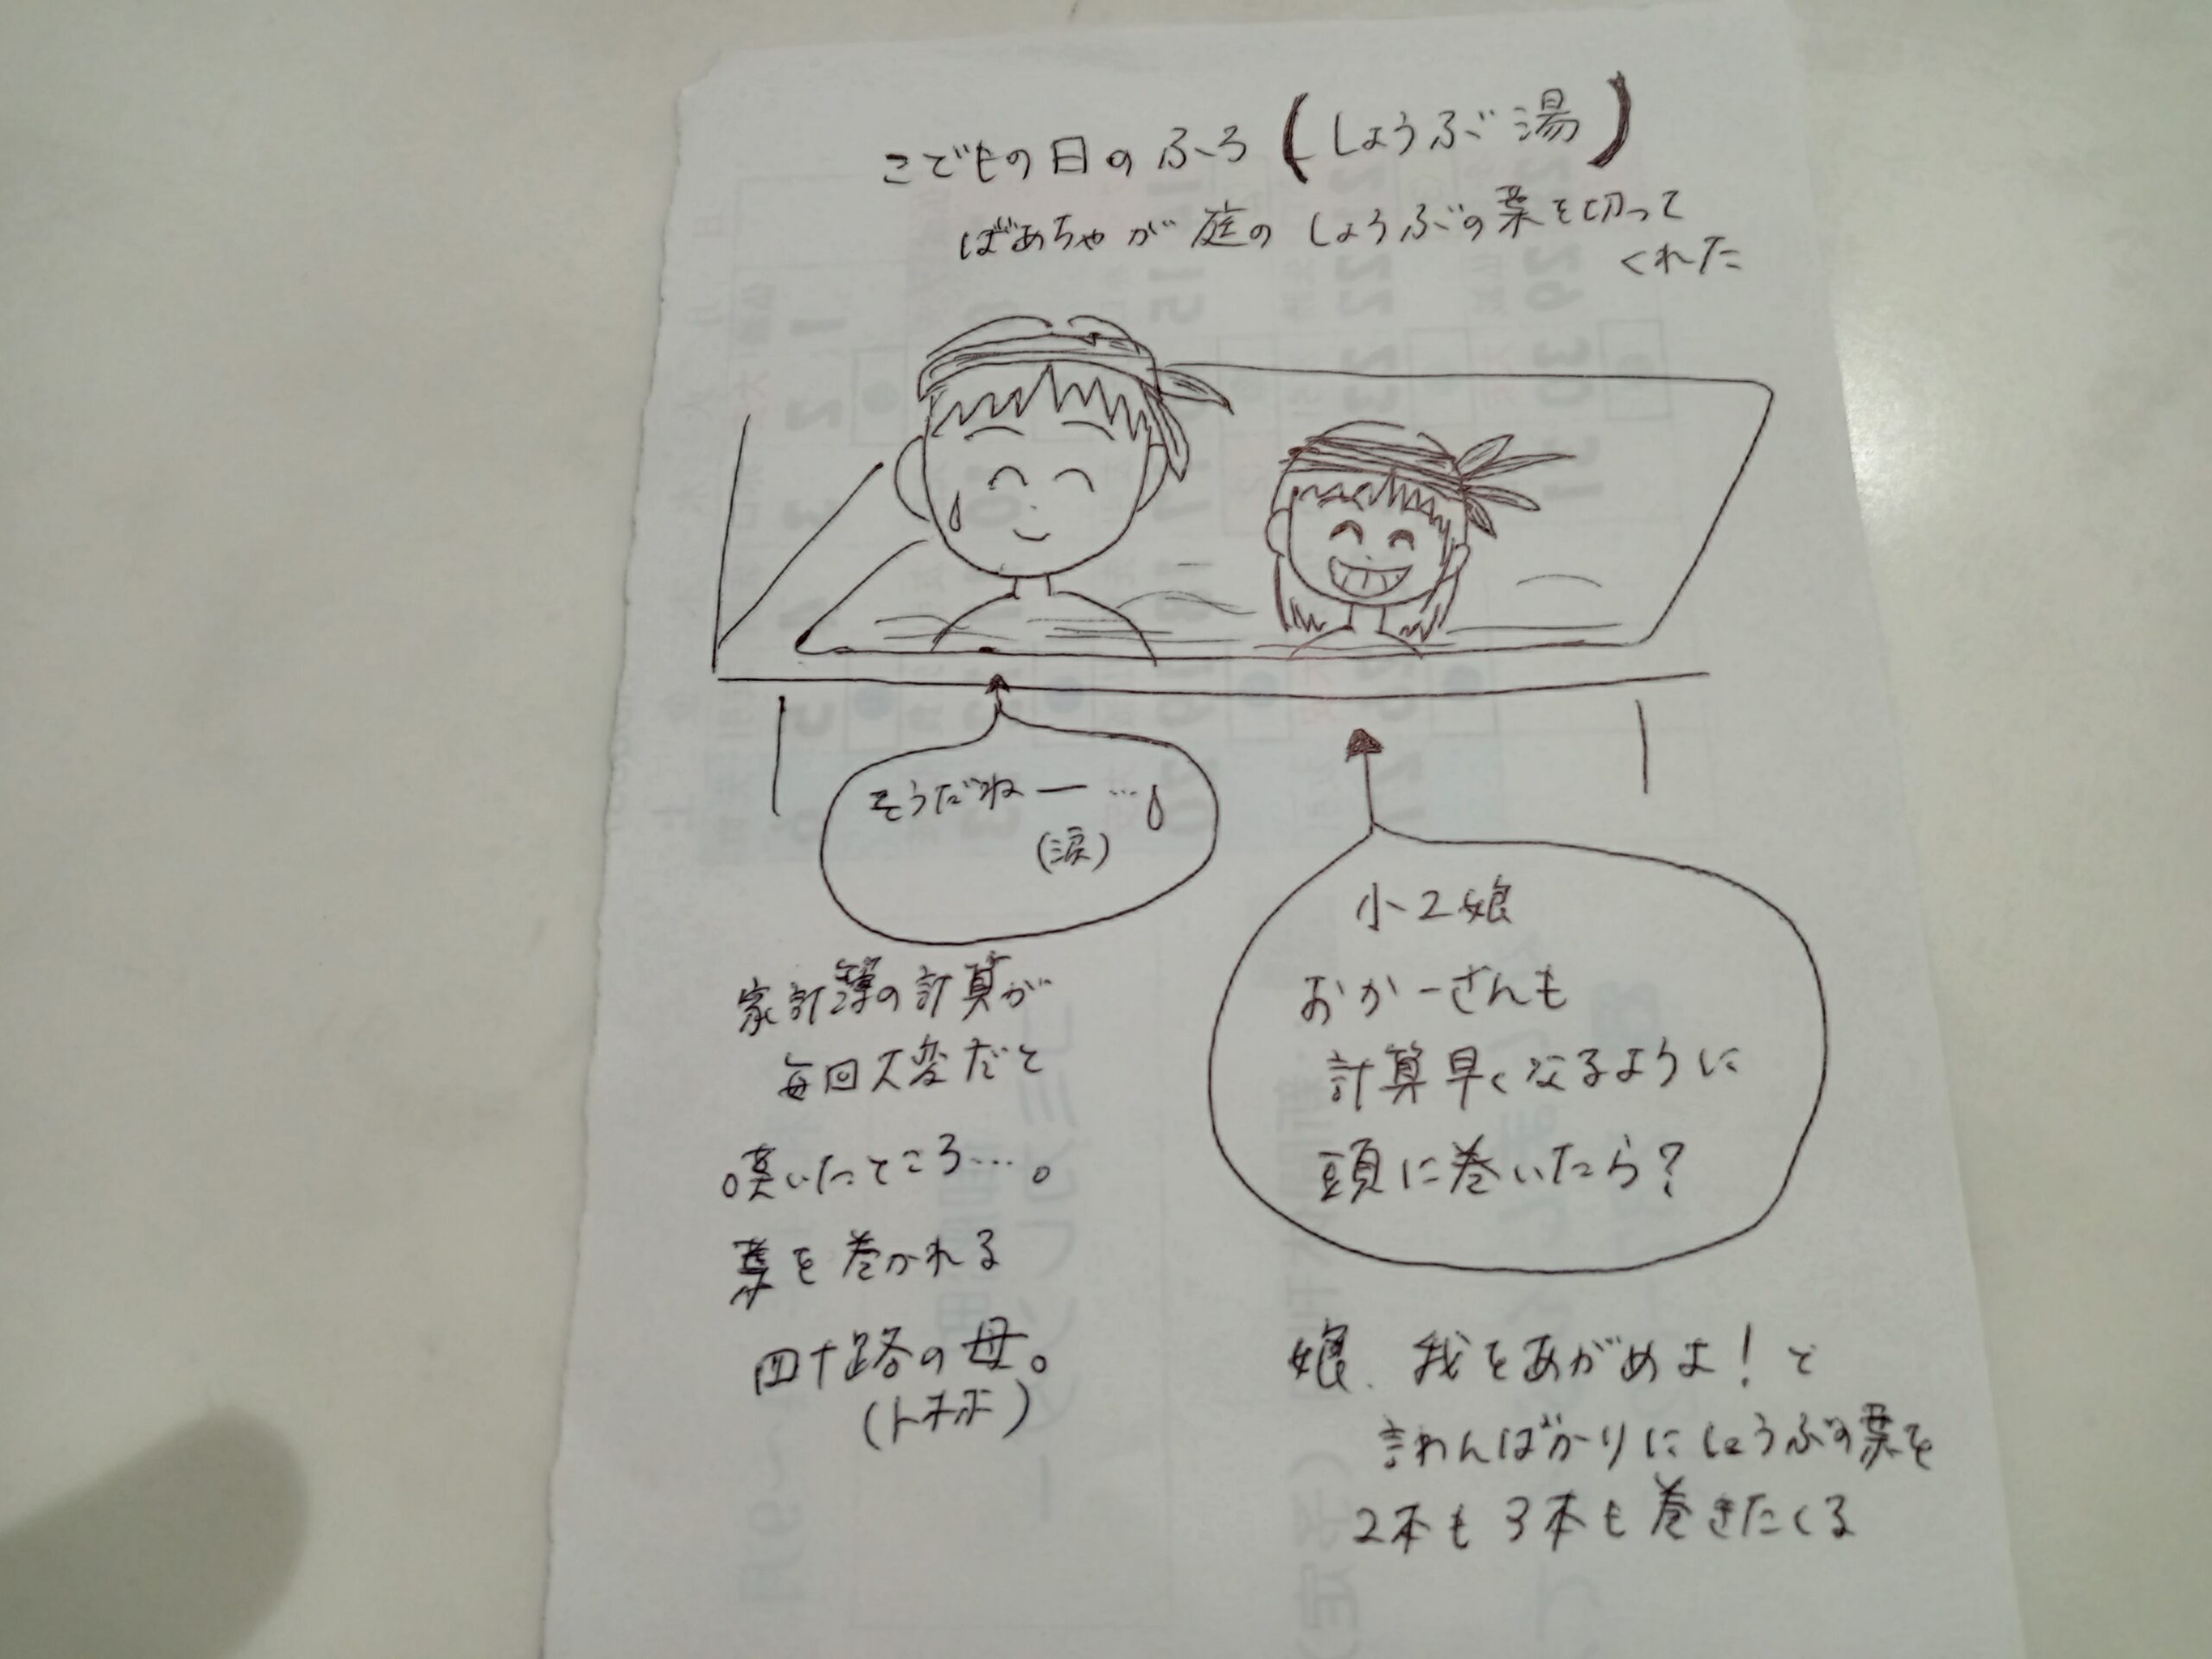 こどもの日のふろ(しょうぶ湯)
ばあちゃが庭のしょうぶの葉を切って
くれた
そうだねー…
(涙)
小2娘
おかーさんも
計算早くなるように
頭に巻いたら?
家計簿の計算が
毎回大変だと
嘆いたところ…。
葉を巻かれる
四十路の母。
(トホホ)
娘、我をあがめよ!と
言わんばかりにしょうぶの葉を
2本も3本も巻きたくる